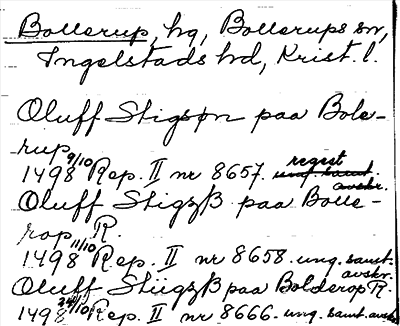 Bollerup, hg, Bollerups sn,
Ingelstads hd, Krist. l.
Oluff Stigsøn paa Bole-
rup
1498 9/10 Rep. II nr 8657. regest
avskr.
Oluff Stigzß paa Bolle-
rop R.
1498 11/10 Rep. II nr 8658. ung. samt.
avskr.
Oluff Stiigzß paa Bolderop R.
1498 24/10 Rep. II nr 8666. ung. samt. avskr.